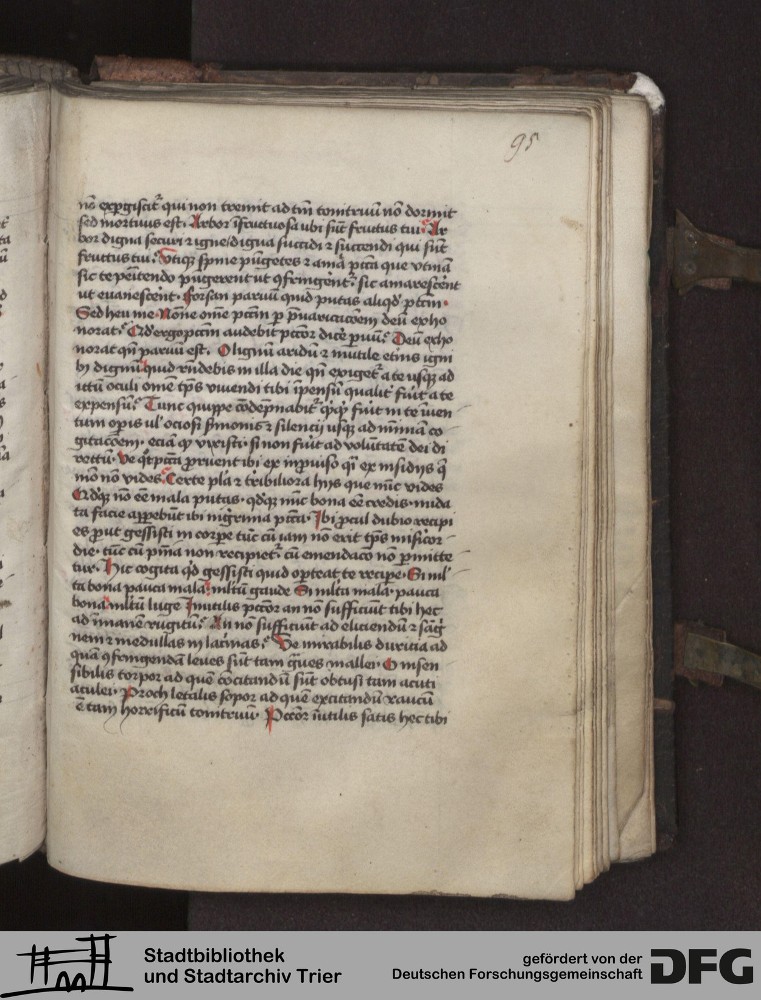 95
nō exꝑgiscit᷑ qui non tremit ad tm̄ tonitruū nō dormit
sed mortuus est. Arbor īfructuosa ubi sūt fructus tui? Ar
bor digna securi ⁊ igne/digna succidi ⁊ succendi qui sūt
fructus tui. Utiqꝫ spine pūgetes ⁊ amā pctā que utinā
sic te penitendo pūgerent ut ꝯfringent᷑. sic amarescent
ut evanescent. Forsan parvū quid putas aliqd̓ pctm̄.
Sed heu me Nōne om̄e pctm̄ ꝑ p̄varicacōem deū exho
norat? Qd̓ ergo pctm̄ audebit pctōr dice̓ parvū? Deū exho
norat qn̄ parvū est. O lignū aridū ⁊ inutile etnis igni
bꝫ dignū quid rn̄debis in illa die qn̄ exiget᷑ a te usqꝫ ad
ictū oculi om̄e tp̄s vivendi tibi īpensū qualit̓ fuit a te
expensū? Tunc quippe cōdēpnabit᷑ qͥcqͥd fuit in te inven
tum operis ul̓ ociosi sermonis ⁊ silencij usqꝫ ad mīmā co
gitacōem. eciā qd̓ vixisti. si non fuit ad volūtatē dei di
rectū. Ve qͦt pctā ꝓruent ibi ex inproviso qͣsi ex insidijs q̄
mō nō vides. Certe plura ⁊ tribiliora hijs que nūc vides
Qd̓qꝫ nō eē mala putas. qd̓qꝫ nūc bona eē credis. nuda
ta facie apparebūt ibi nigrima pctā. Ibi ꝓcul dubio recipi
es ꝓut gessisti in corpe tūc cū iam nō erit tp̄s misericor
die. tūc cū pn̄ia non recipiet᷑. cū emendacō nō ꝓmitte
tur. Hic cogita qd̓ gessisti quid oporteat te recipe. Si mul
ta bona pauca mala. mltū gaude Si mlta mala. pauca
bona. mltū luge Inutilis pctōr an nō sufficiūt tibi hec
ad inmanē rugitū? An nō sufficiūt ad eliciendū ⁊ sāg
nem ⁊ medullas in lacrimas? Ve mirabilis duricia ad
quā ꝯfringendā leves sūt tam gͣves mallei. O insen
sibilis torpor ad quē cōcitandū sūt obtusi tam acuti
aculei. Proch letalis sopor ad quē excitandū raucū
ē tam horrificū tonitruū. Pctōr īutilis satis hec tibi
Stadtbibliothek
und Stadtarchiv Trier
gefördert von der
Deutschen Forschungsgemeinschaft
DFG